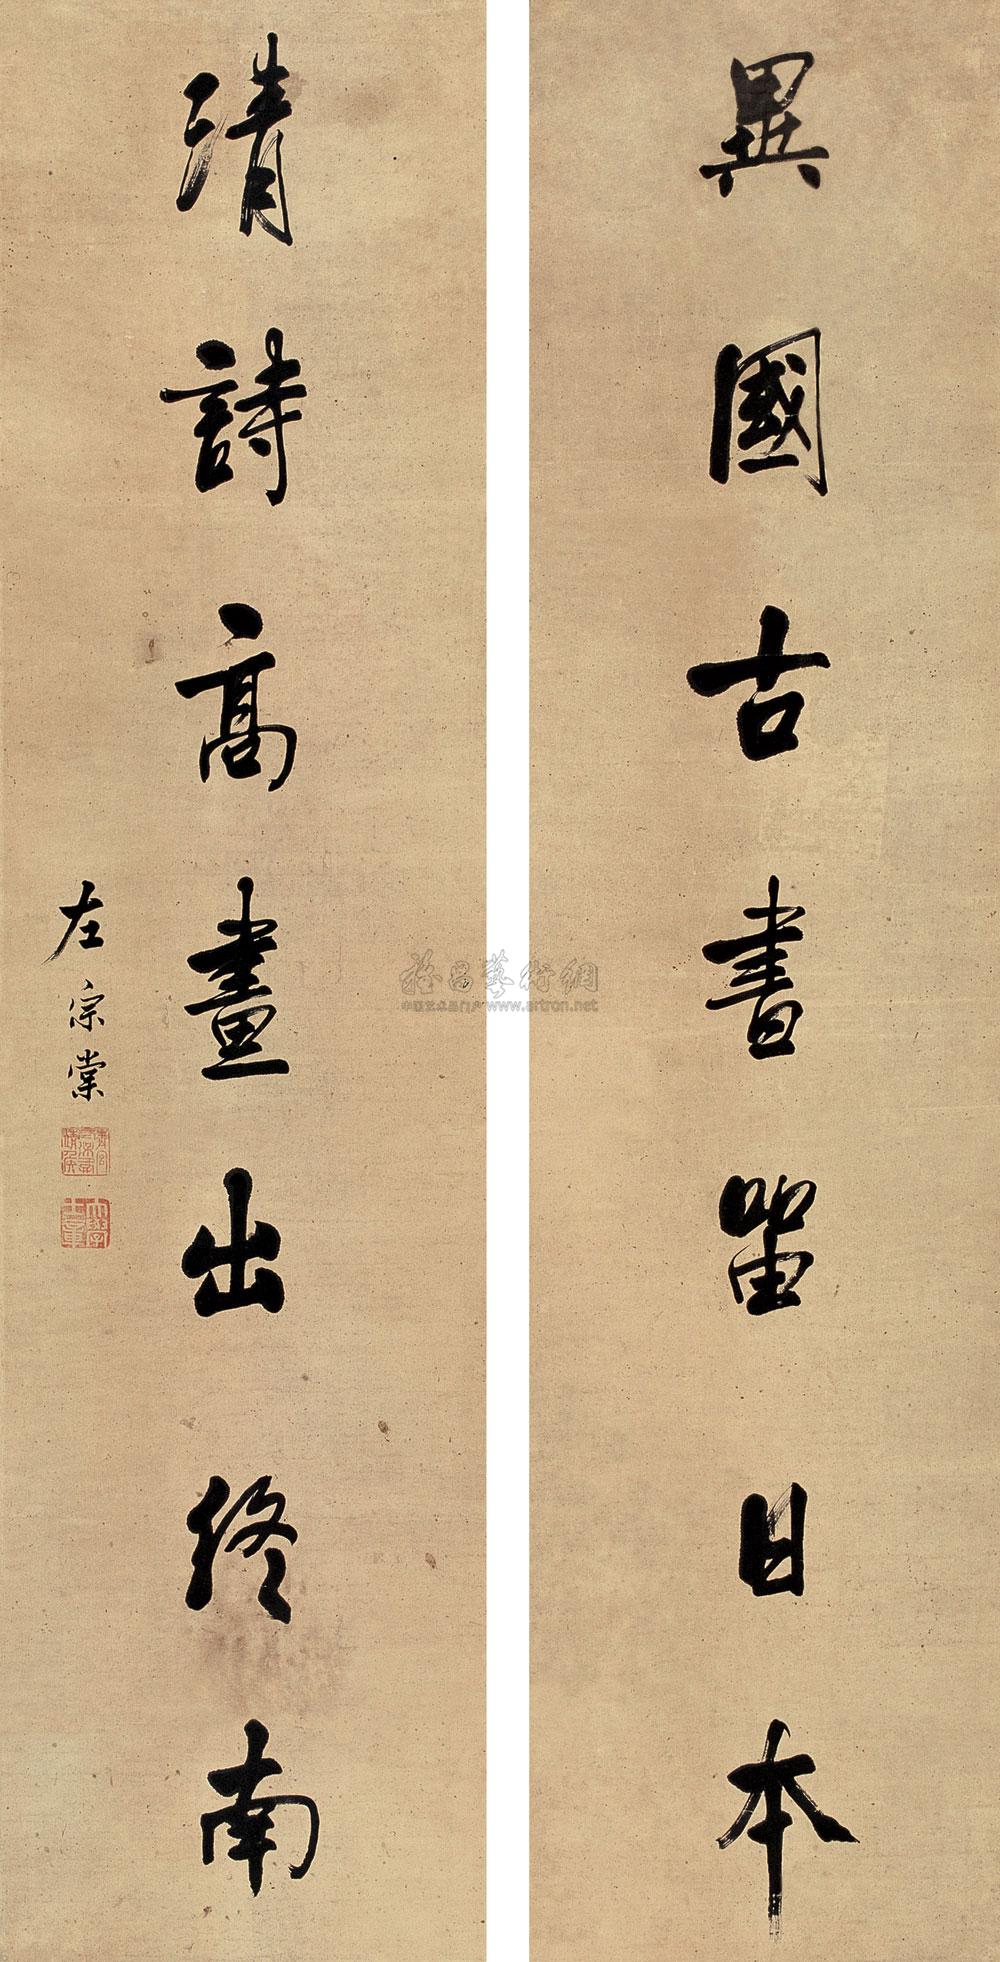 異國古書留日本
清詩高畫出終南
左宗棠
雅昌藝術網
中国艺术品门户 www.artron.net